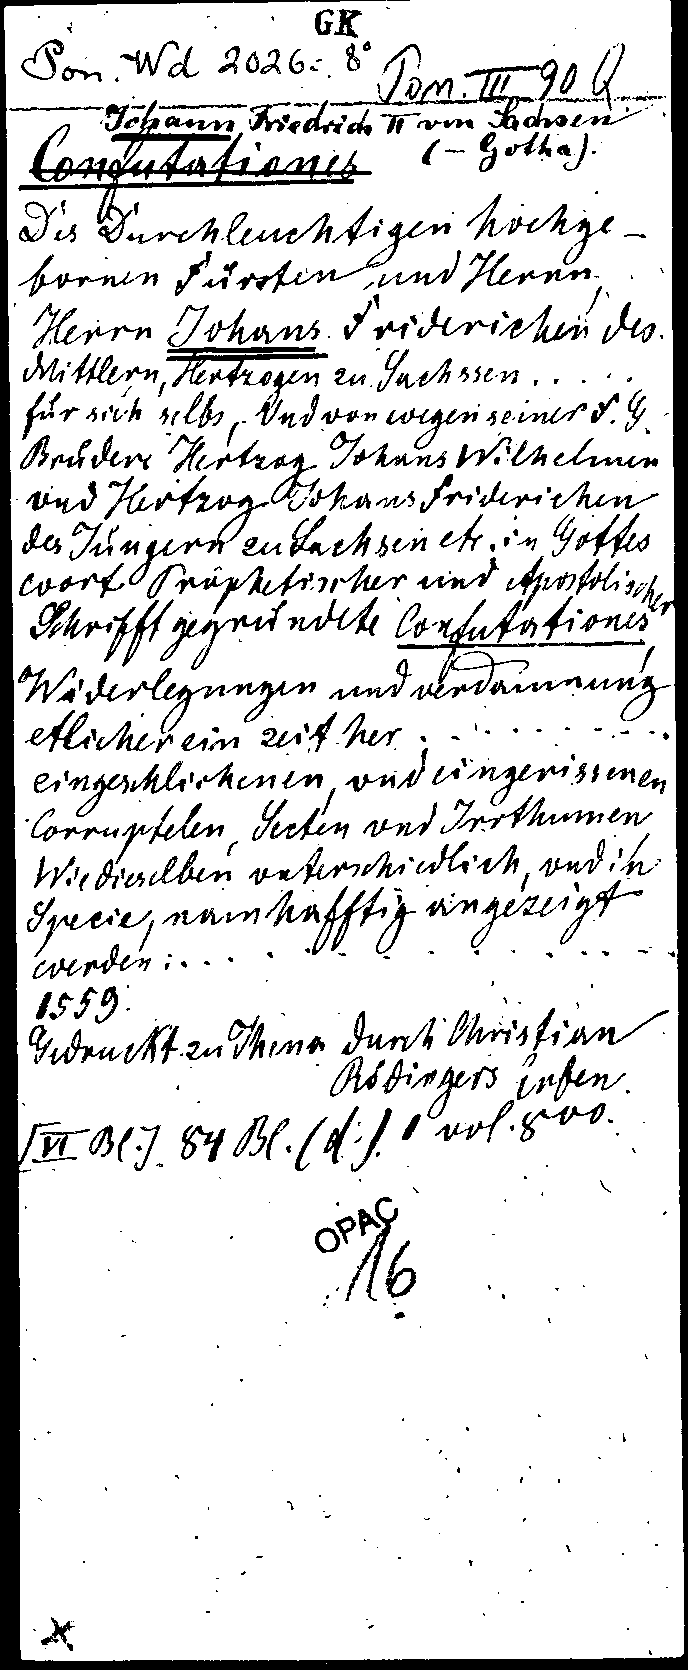 GK
Pon. Wd 2026: 8°
Pon. III 90 Q
Johann Friedrich II von Sachsen
(- Gotha).
Confutationes
Des Durchleuchtigen hochge-
bornen Fürsten und Herrn,
Herrn Johans Friderichen des
Mittlern, Hertzogen zu Sachssen . . . . .
für sich selbs, Und von wegen seiner F. G.
Brüdere Hertzog Johans Wilhelmen
vnd Hertzog Johans Friderichen
des Jüngern zu Sachsen etc. in Gottes
wort Prophetischer und Apostolischer
Schrifft gegründete Confutationes,
Widerlegungen und verdammung
etlicher ein zeit her . . . . . . . . .
eingeschlichenen, vnd eingerissenen
Corruptelen, Secten vnd Irrthumen
Wie dieselben vnterschiedlich, vnd in
Specie, namhafftig angezeigt
werden: . . . . . . . . . . . .
1559.
Gedruckt zu Ihena durch Christian
Rödingers Erben.
[VI Bl.] 84 Bl. (d:). 1 vol. 8vo.
OPAC
16